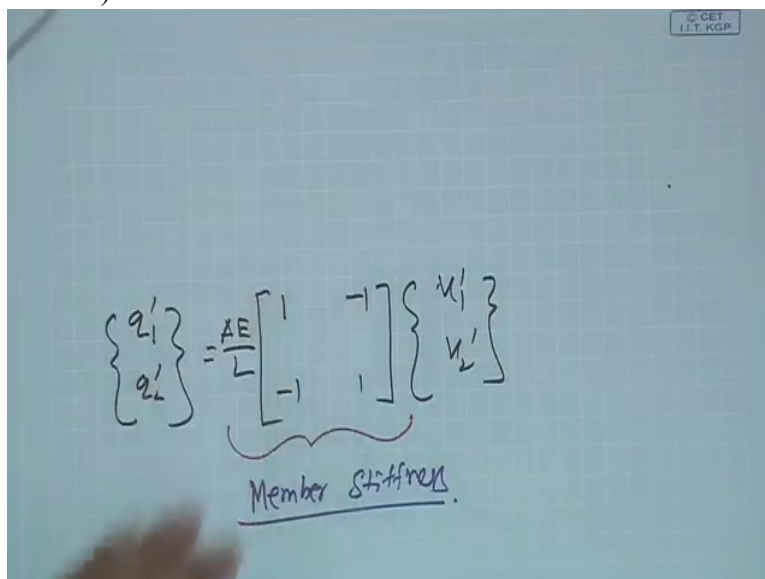 © CET
I.I.T. KGP
{q₁' q₂'} = AE/L [1 -1 -1 1] {u₁' u₂'}
Member Stiffness.